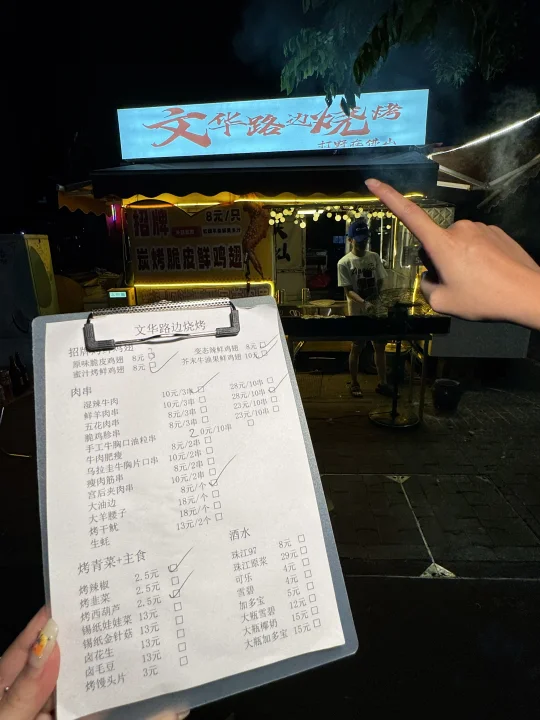 文华路边烧烤
打虾在佛山
招牌
8元/只
炭烤脆皮鲜鸡翅
文华路边烧烤
原味脆皮鸡翅 8元 变态辣鲜鸡翅 8元
蜜汁烤鲜鸡翅 8元 芥末牛油果鲜鸡翅 10元
肉串
湿辣牛肉 10元/3串 28元/10串
鲜羊肉串 10元/3串 28元/10串
五花肉串 8元/3串 23元/10串
脆鸡胗串 8元/3串 23元/10串
手工牛胸口油粒串 20元/10串
牛肉肥瘦 8元/2串
乌拉圭牛胸片口串 10元/2串
辣肉筋串 8元/2串
宫后夹肉串 10元/2串
大油边 8元/个
大羊腰子 18元/个
烤干鱿 18元/个
生蚝 13元/2个
烤青菜+主食
烤辣椒 2.5元
烤韭菜 2.5元
烤西葫芦 2.5元
锡纸娃娃菜 13元
锡纸金针菇 13元
卤花生 13元
卤毛豆 13元
烤馒头片 3元
酒水
珠江97 8元
珠江原浆 29元
可乐 4元
雪碧 4元
加多宝 5元
大瓶雪碧 12元
大瓶椰奶 15元
大瓶加多宝 15元